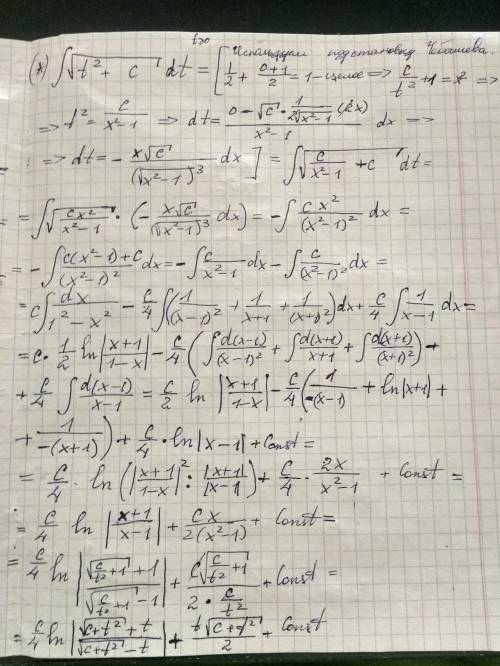 t>0
(*) ∫√(t² + c) dt = [Используем подстановку Чебышева.
1/2 + (0+1)/2 = 1 - целое => c/t² + 1 = x² =>
=> t² = c/(x²-1) => dt = (0 - √c · 1/(2√(x²-1)) (2x))/(x²-1) dx =>
=> dt = - x√c/(√(x²-1))³ dx] = ∫√(c/(x²-1) + c) dt =
= ∫√(cx²/(x²-1)) · (- x√c/(√(x²-1))³ dx) = -∫ cx²/(x²-1)² dx =
= -∫ (c(x²-1)+c)/(x²-1)² dx = -∫ c/(x²-1) dx - ∫ c/(x²-1)² dx =
= c∫ dx/(1²-x²) - c/4 ∫(1/(x-1)² + 1/(x+1) + 1/(x+1)²)dx + c/4 ∫ 1/(x-1) dx =
= c · 1/2 ln|(x+1)/(1-x)| - c/4 (∫ d(x-1)/(x-1)² + ∫ d(x+1)/(x+1) + ∫ d(x+1)/(x+1)²) +
+ c/4 ∫ d(x-1)/(x-1) = c/2 ln |(x+1)/(1-x)| - c/4 (1/(-(x-1)) + ln|x+1| +
+ 1/(-(x+1))) + c/4 · ln|x-1| + Const =
= c/4 · ln (|(x+1)/(1-x)|² : |x+1|/|x-1|) + c/4 · 2x/(x²-1) + Const =
= c/4 ln |(x+1)/(x-1)| + cx/(2(x²-1)) + Const =
= c/4 ln |(√(c/t²+1) + 1)/(√(c/t²+1) - 1)| + c√(c/t²+1)/(2 · c/t²) + Const =
= c/4 ln |(√(c+t²) + t)/(√(c+t²) - t)| + t√(c+t²)/2 + Const